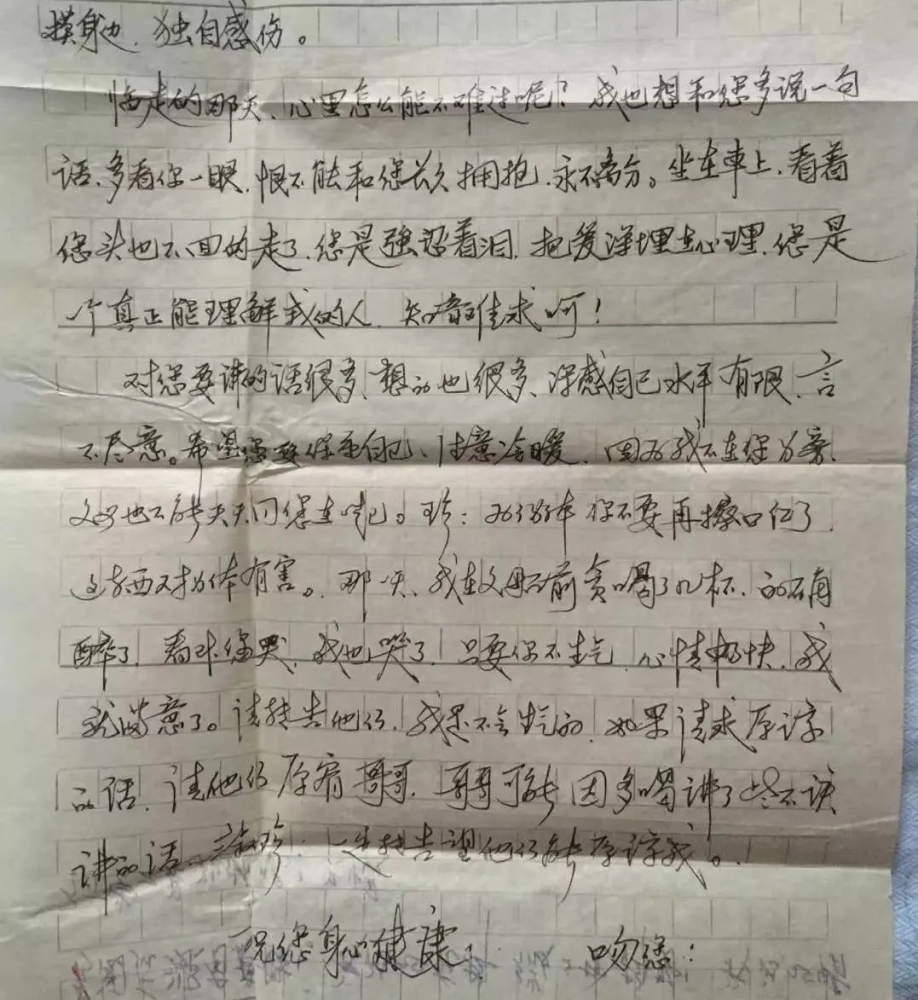 摸身边、独自感伤。
临走的那天、心里怎么能不难过呢？我也想和您多说一句
话、多看你一眼、恨不能和您长久拥抱、永不离分。坐在车上、看着
您头也不回的走了、您是强忍着泪、把爱深埋在心理、您是
一个真正能理解我的人、知音难求呵！
对您要讲的话很多、想的也很多、深感自己水平有限、言
不尽意。希望您要保重自己、注意冷暖、因为我不在您身旁、
父母也不能天天同您在一起。珍：为了身体你不要再擦口红了、
这东西对身体有害。那一天、我在父母面前贪喝了几杯、的确有
醉了、看来您哭、我也哭了、只要你不生气、心情畅快、我
就满意了。请转告他们、我是不会生气的、如果请求原谅
的话、请他们原宥哥哥、哥哥可能因多喝讲了些不该
讲的话、珍：一定转告望他们能原谅我。
祝您身心健康、 吻您：